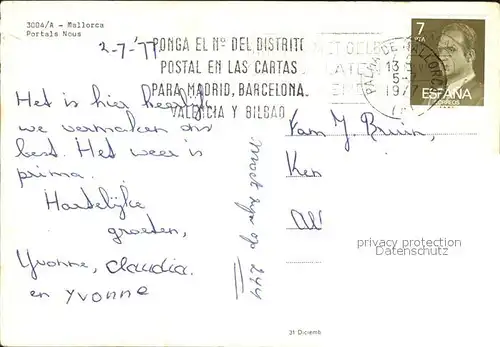 3004/A - Mallorca
Portals Nous
2-7-'77
PONGA EL Nº DEL DISTRITO
POSTAL EN LAS CARTAS
PARA MADRID, BARCELONA
VALENCIA Y BILBAO
7
PTA
ESPAÑA
CORREOS
Het is hier heerlijk
we vermaken ons
best. Het weer is
prima.
Hartelijke
groeten,
Yvonne, Claudia.
en Yvonne
Fam J. Bruin,
privacy protection
Datenschutz
31 Diciemb